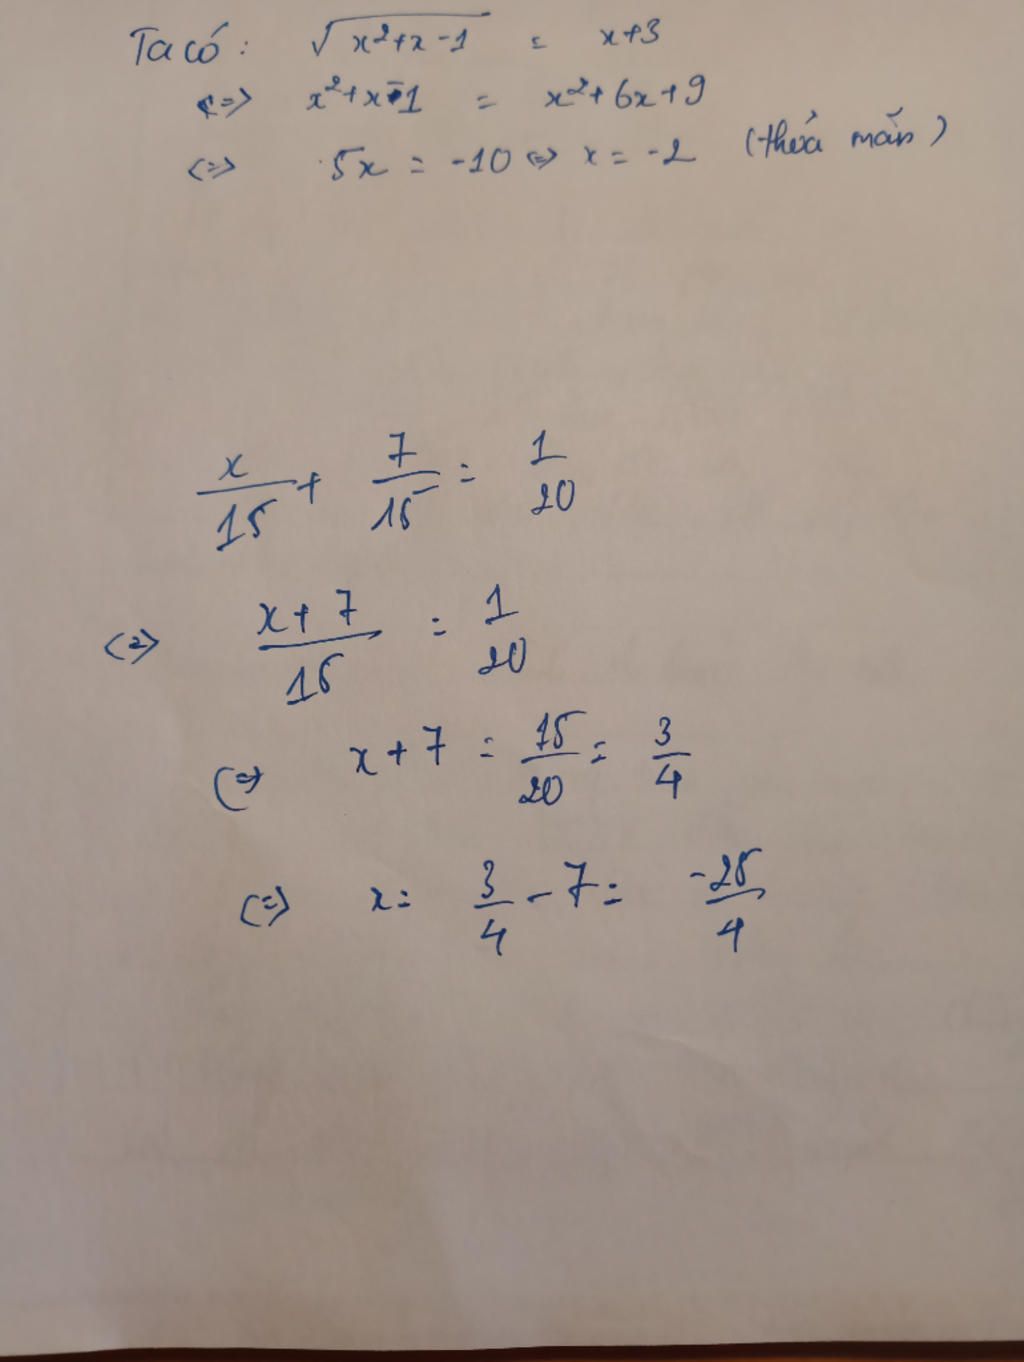 Ta có: √(x²+x-1) = x+3
<=> x²+x-1 = x²+6x+9
<=> 5x = -10 <=> x = -2 (thoả mãn)
x/15 + 7/15 = 1/20
<=> (x+7)/15 = 1/20
<=> x+7 = 15/20 = 3/4
<=> x = 3/4 - 7 = -25/4